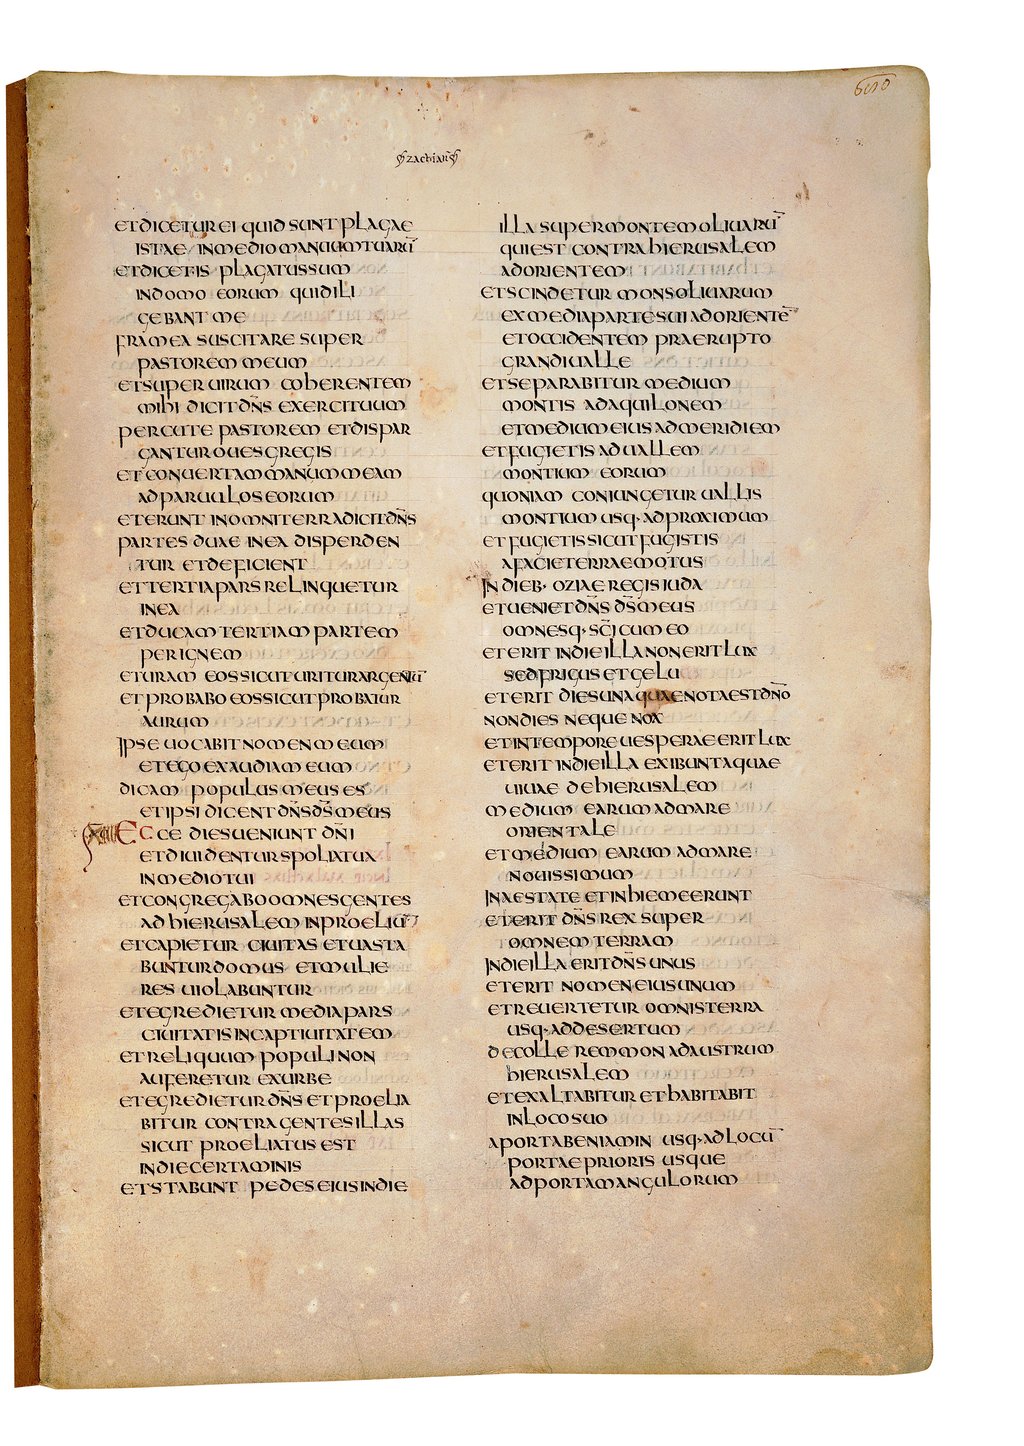 ZACHAR
ET DICETUR EI QUID SUNT PLAGAE
ISTAE IN MEDIO MANUUM TUARŪ
ET DICET HIS PLAGATUS SUM
IN DOMO EORUM QUI DILI
GEBANT ME
FRAMEA SUSCITARE SUPER
PASTOREM MEUM
ET SUPER UIRUM COHERENTEM
MIHI DICIT DN̄S EXERCITUUM
PERCUTE PASTOREM ET DISPAR
GANTUR OUES GREGIS
ET CONUERTAM MANUM MEAM
AD PARUULOS EORUM
ET ERUNT IN OMNI TERRA DICIT DN̄S
PARTES DUAE IN EA DISPERDEN
TUR ET DEFICIENT
ET TERTIA PARS RELINQUETUR
IN EA
ET DUCAM TERTIAM PARTEM
PER IGNEM
ET URAM EOS SICUT URITUR ARGENTŪ
ET PROBABO EOS SICUT PROBATUR
AURUM
IPSE UOCABIT NOMEN MEUM
ET EGO EXAUDIAM EUM
DICAM POPULUS MEUS ES
ET IPSI DICENT DN̄S DS̄ MEUS
ECCE DIES UENIUNT DN̄I
ET DIUIDENTUR SPOLIA TUA
IN MEDIO TUI
ET CONGREGABO OMNES GENTES
AD HIERUSALEM IN PROELIŪ
ET CAPIETUR CIUITAS ET UASTA
BUNTUR DOMUS ET MULIE
RES UIOLABUNTUR
ET EGREDIETUR MEDIA PARS
CIUITATIS IN CAPTIUITATEM
ET RELIQUUM POPULI NON
AUFERETUR EX URBE
ET EGREDIETUR DN̄S ET PROELIA
BITUR CONTRA GENTES ILLAS
SICUT PROELIATUS EST
IN DIE CERTAMINIS
ET STABUNT PEDES EIUS IN DIE
ILLA SUPER MONTEM OLIUARŪ
QUI EST CONTRA HIERUSALEM
AD ORIENTEM
ET SCINDETUR MONS OLIUARUM
EX MEDIA PARTE SUI AD ORIENTĒ
ET OCCIDENTEM PRAERUPTO
GRANDI UALLE
ET SEPARABITUR MEDIUM
MONTIS AD AQUILONEM
ET MEDIUM EIUS AD MERIDIEM
ET FUGIETIS AD UALLEM
MONTIUM EORUM
QUONIAM CONIUNGETUR UALLIS
MONTIUM USQ· AD PROXIMUM
ET FUGIETIS SICUT FUGISTIS
A FACIE TERRAE MOTUS
IN DIEB· OZIAE REGIS IUDA
ET UENIET DN̄S DS̄ MEUS
OMNESQ· SC̄I CUM EO
ET ERIT IN DIE ILLA NON ERIT LUX
SED FRIGUS ET GELU
ET ERIT DIES UNA QUAE NOTA EST DN̄O
NON DIES NEQUE NOX
ET IN TEMPORE UESPERAE ERIT LUX
ET ERIT IN DIE ILLA EXIBUNT AQUAE
UIUAE DE HIERUSALEM
MEDIUM EARUM AD MARE
ORIENTALE
ET MEDIUM EARUM AD MARE
NOUISSIMUM
IN AESTATE ET IN HIEME ERUNT
ET ERIT DN̄S REX SUPER
OMNEM TERRAM
IN DIE ILLA ERIT DN̄S UNUS
ET ERIT NOMEN EIUS UNUM
ET REUERTETUR OMNIS TERRA
USQ· AD DESERTUM
DE COLLE REMMON AD AUSTRUM
HIERUSALEM
ET EXALTABITUR ET HABITABIT
IN LOCO SUO
A PORTA BENIAMIN USQ· AD LOCŪ
PORTAE PRIORIS USQUE
AD PORTAM ANGULORUM